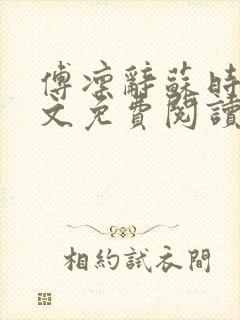 傅凜辭蘇時
文免費閱讀
相約試衣間